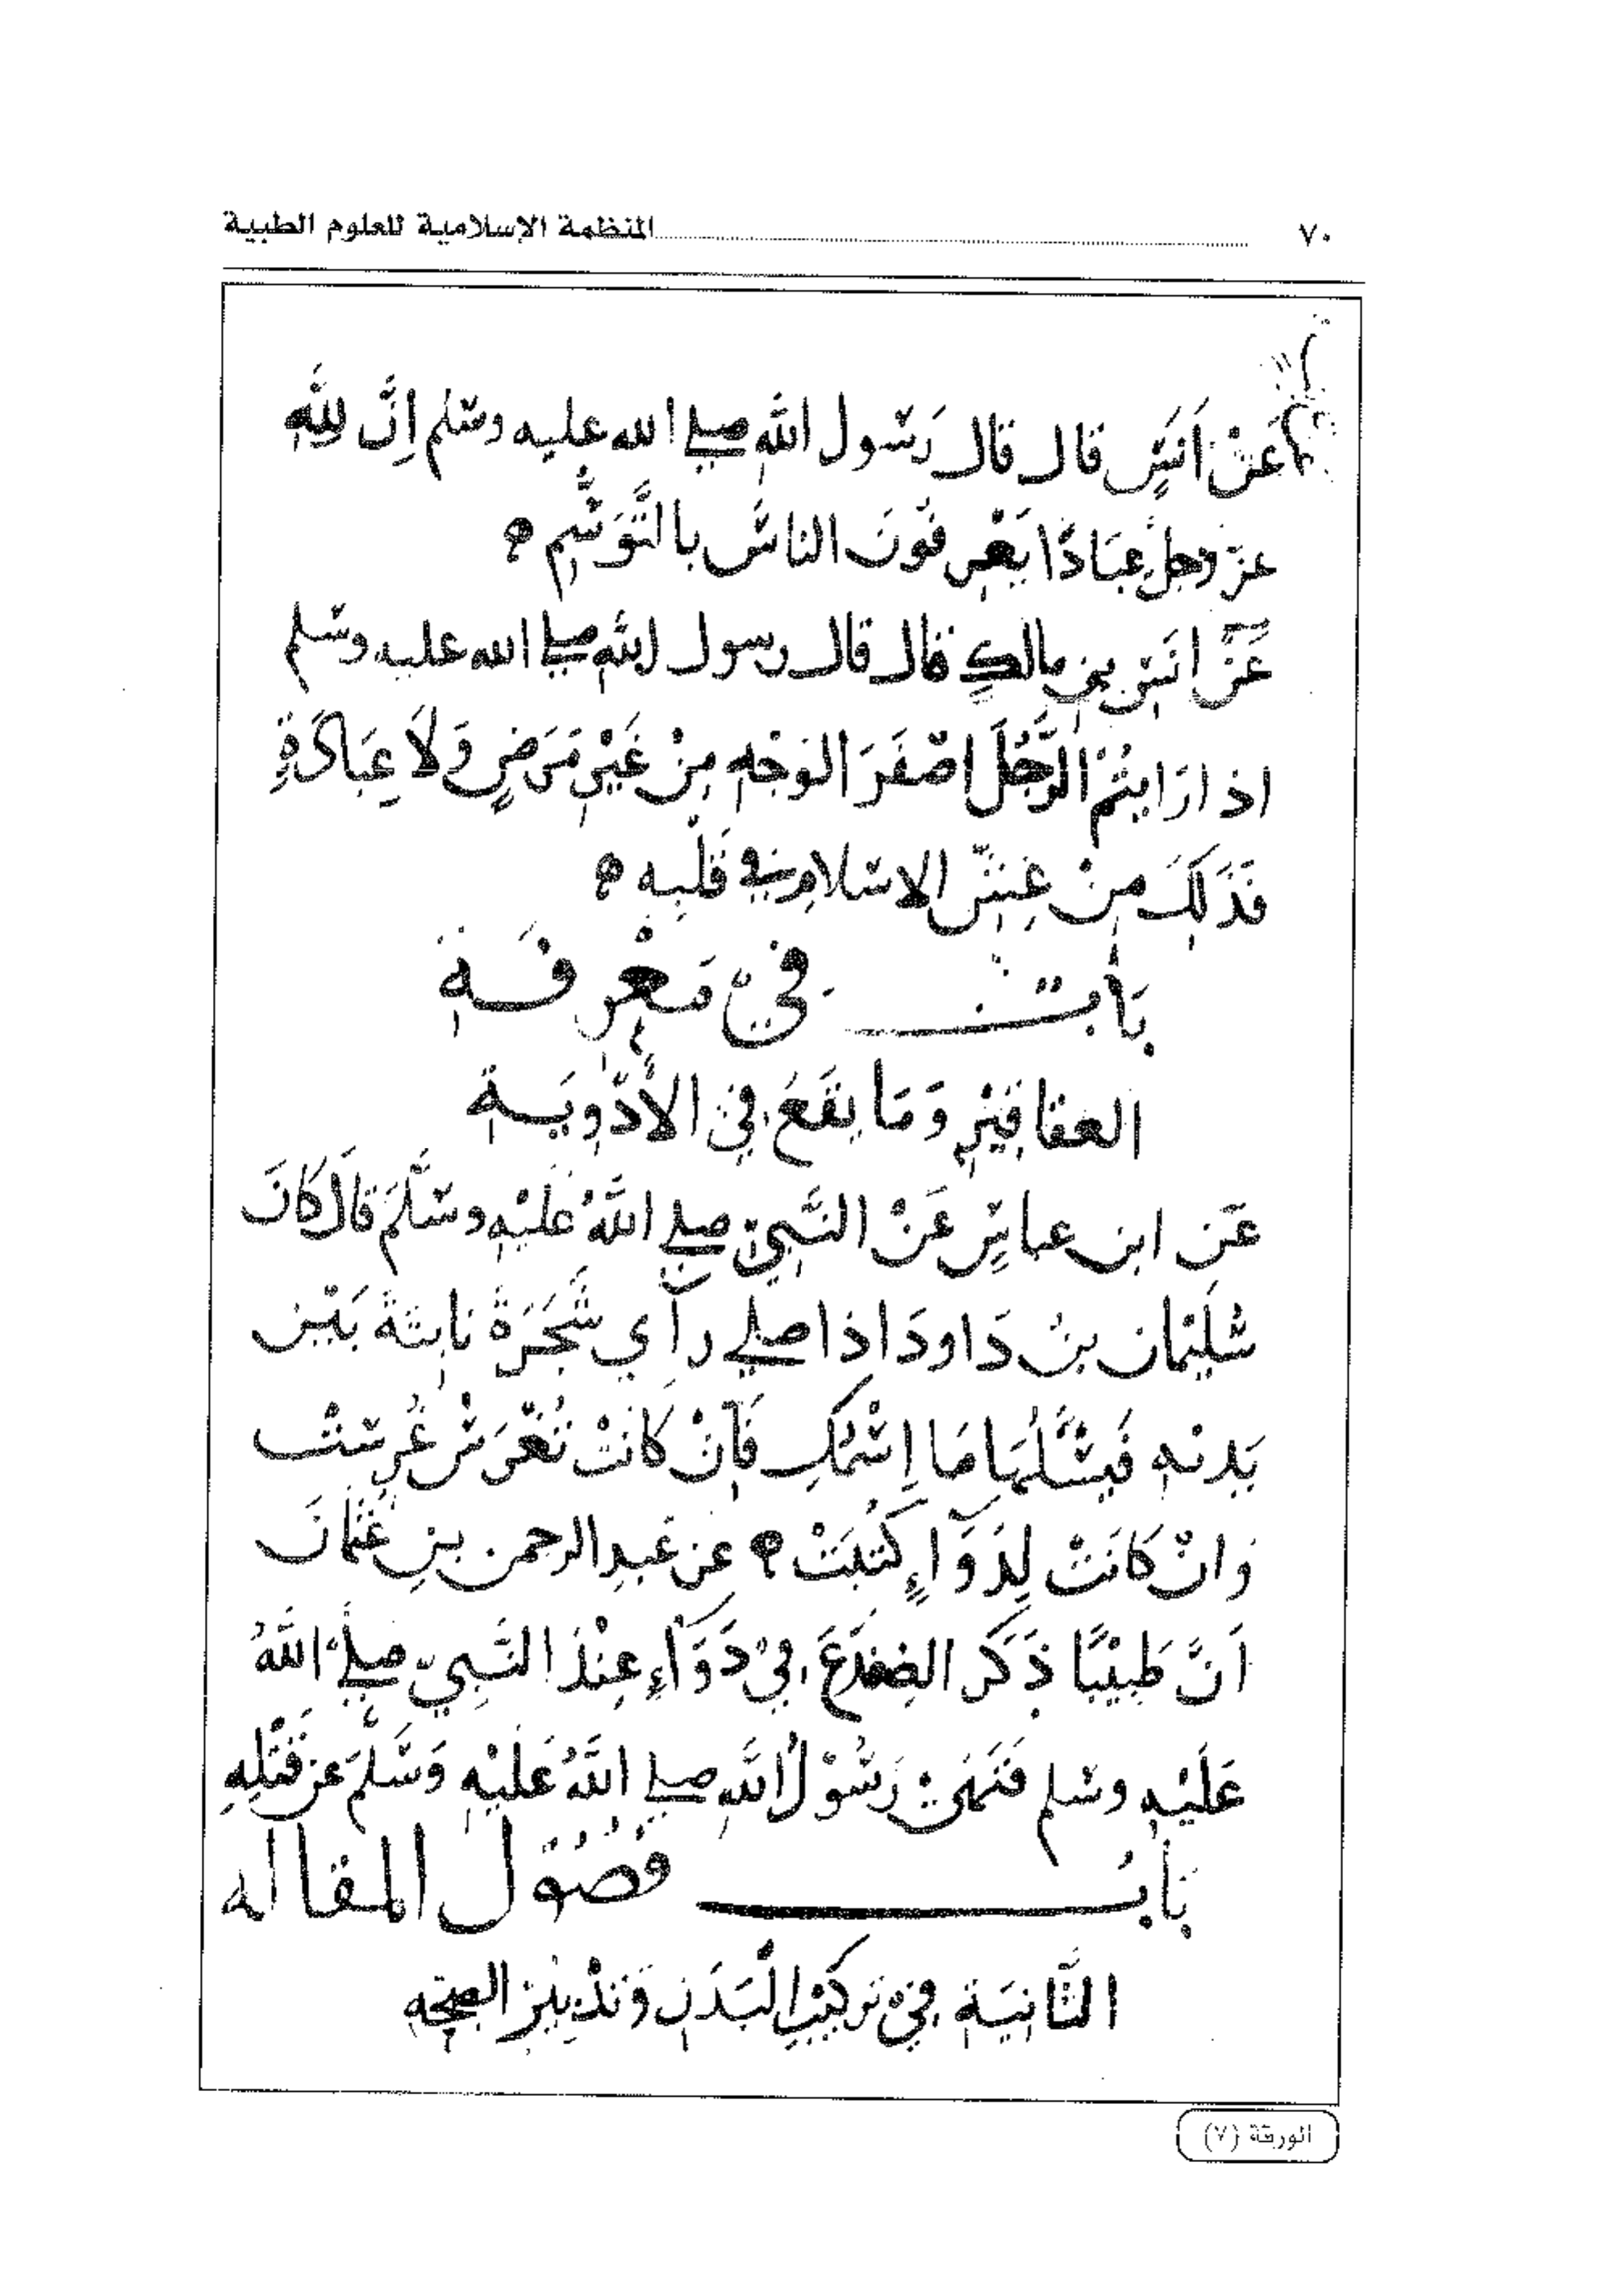 ٧٠ المنظمة الإسلامية للعلوم الطبية
عَنْ اَنَسٍ قال قال رَسول اللَّه صلى الله عليه وسلم اِنَّ لِلَّهِ
عزّ وجلَّ عِبَادًا يَعْرِفُونَ الناسَ بالتَّوَسُّمِ ه
عَنْ انَسِ بنِ مالكٍ قال قال رسول الله صلى الله عليه وسلم
اذا رَايتُمْ الرَّجُلَ اصْفَرَ الوَجْهِ مِنْ غَيْرِ مَرَضٍ وَلاَ عِبَادَةٍ
فَذَلِكَ مِنْ غِشِّ الاسْلامِ في قَلْبِه ه
بَابٌ في مَعْرِفَةِ
العقاقيْرِ وَمَا يقَعَ في الأَدْوِيَةِ
عَن ابن عباسٍ عَنْ النَّبيِّ صلى اللَّهُ عَلَيْهِ وسَلَّمَ قالَ كَانَ
سُلَيْمَان بنُ دَاودَ اذا صلى رآي شَجَرَةً نابتَةً بَيْن
يَديْهِ فَيسْئَلُهَا مَا اِسْمُكِ فَاِنْ كَانَتْ تُغْرَسْ غُرِسَتْ
وَانْ كَانَتْ لِدَوَآءٍ كُتبَتْ ه عن عَبدِ الرحمن بنِ عُثمَانَ
اَنَّ طَبِيْبًا ذَكَر الضِفدَعَ في دَوَآءٍ عِنْدَ النَّبِيِّ صلى اللَّهُ
عَلَيْهِ وسلم فَنَهَىْ رَسُوْلُ اللَّه صلى اللَّهُ عَلَيْهِ وَسَلَّمَ عن قَتْلِهِ
بَابُ فُصُوْل المقاله
الثَّانيَة في تركيْبِ الْبَدَنِ وَتَدْبِيْرِ الصِحّه
الورقة (٧)